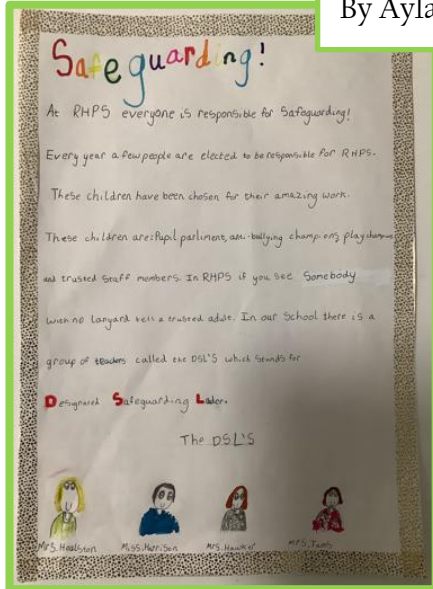 By Ayla
Safeguarding!
At RHPS everyone is responsible for Safeguarding!
Every year a few people are elected to be responsible for RHPS.
These children have been chosen for their amazing work.
These children are: Pupil parliment, anti-bullying champions, play
and trusted Staff members. In RHPS if you see Somebody
with no lanyard tell a trusted adult. In our School there is a
group of teachers called the DSL'S which Stands for
Designated Safeguarding Lader.
The DSL'S
Mrs. Miss. Harrison Mrs. Hawker Mrs.